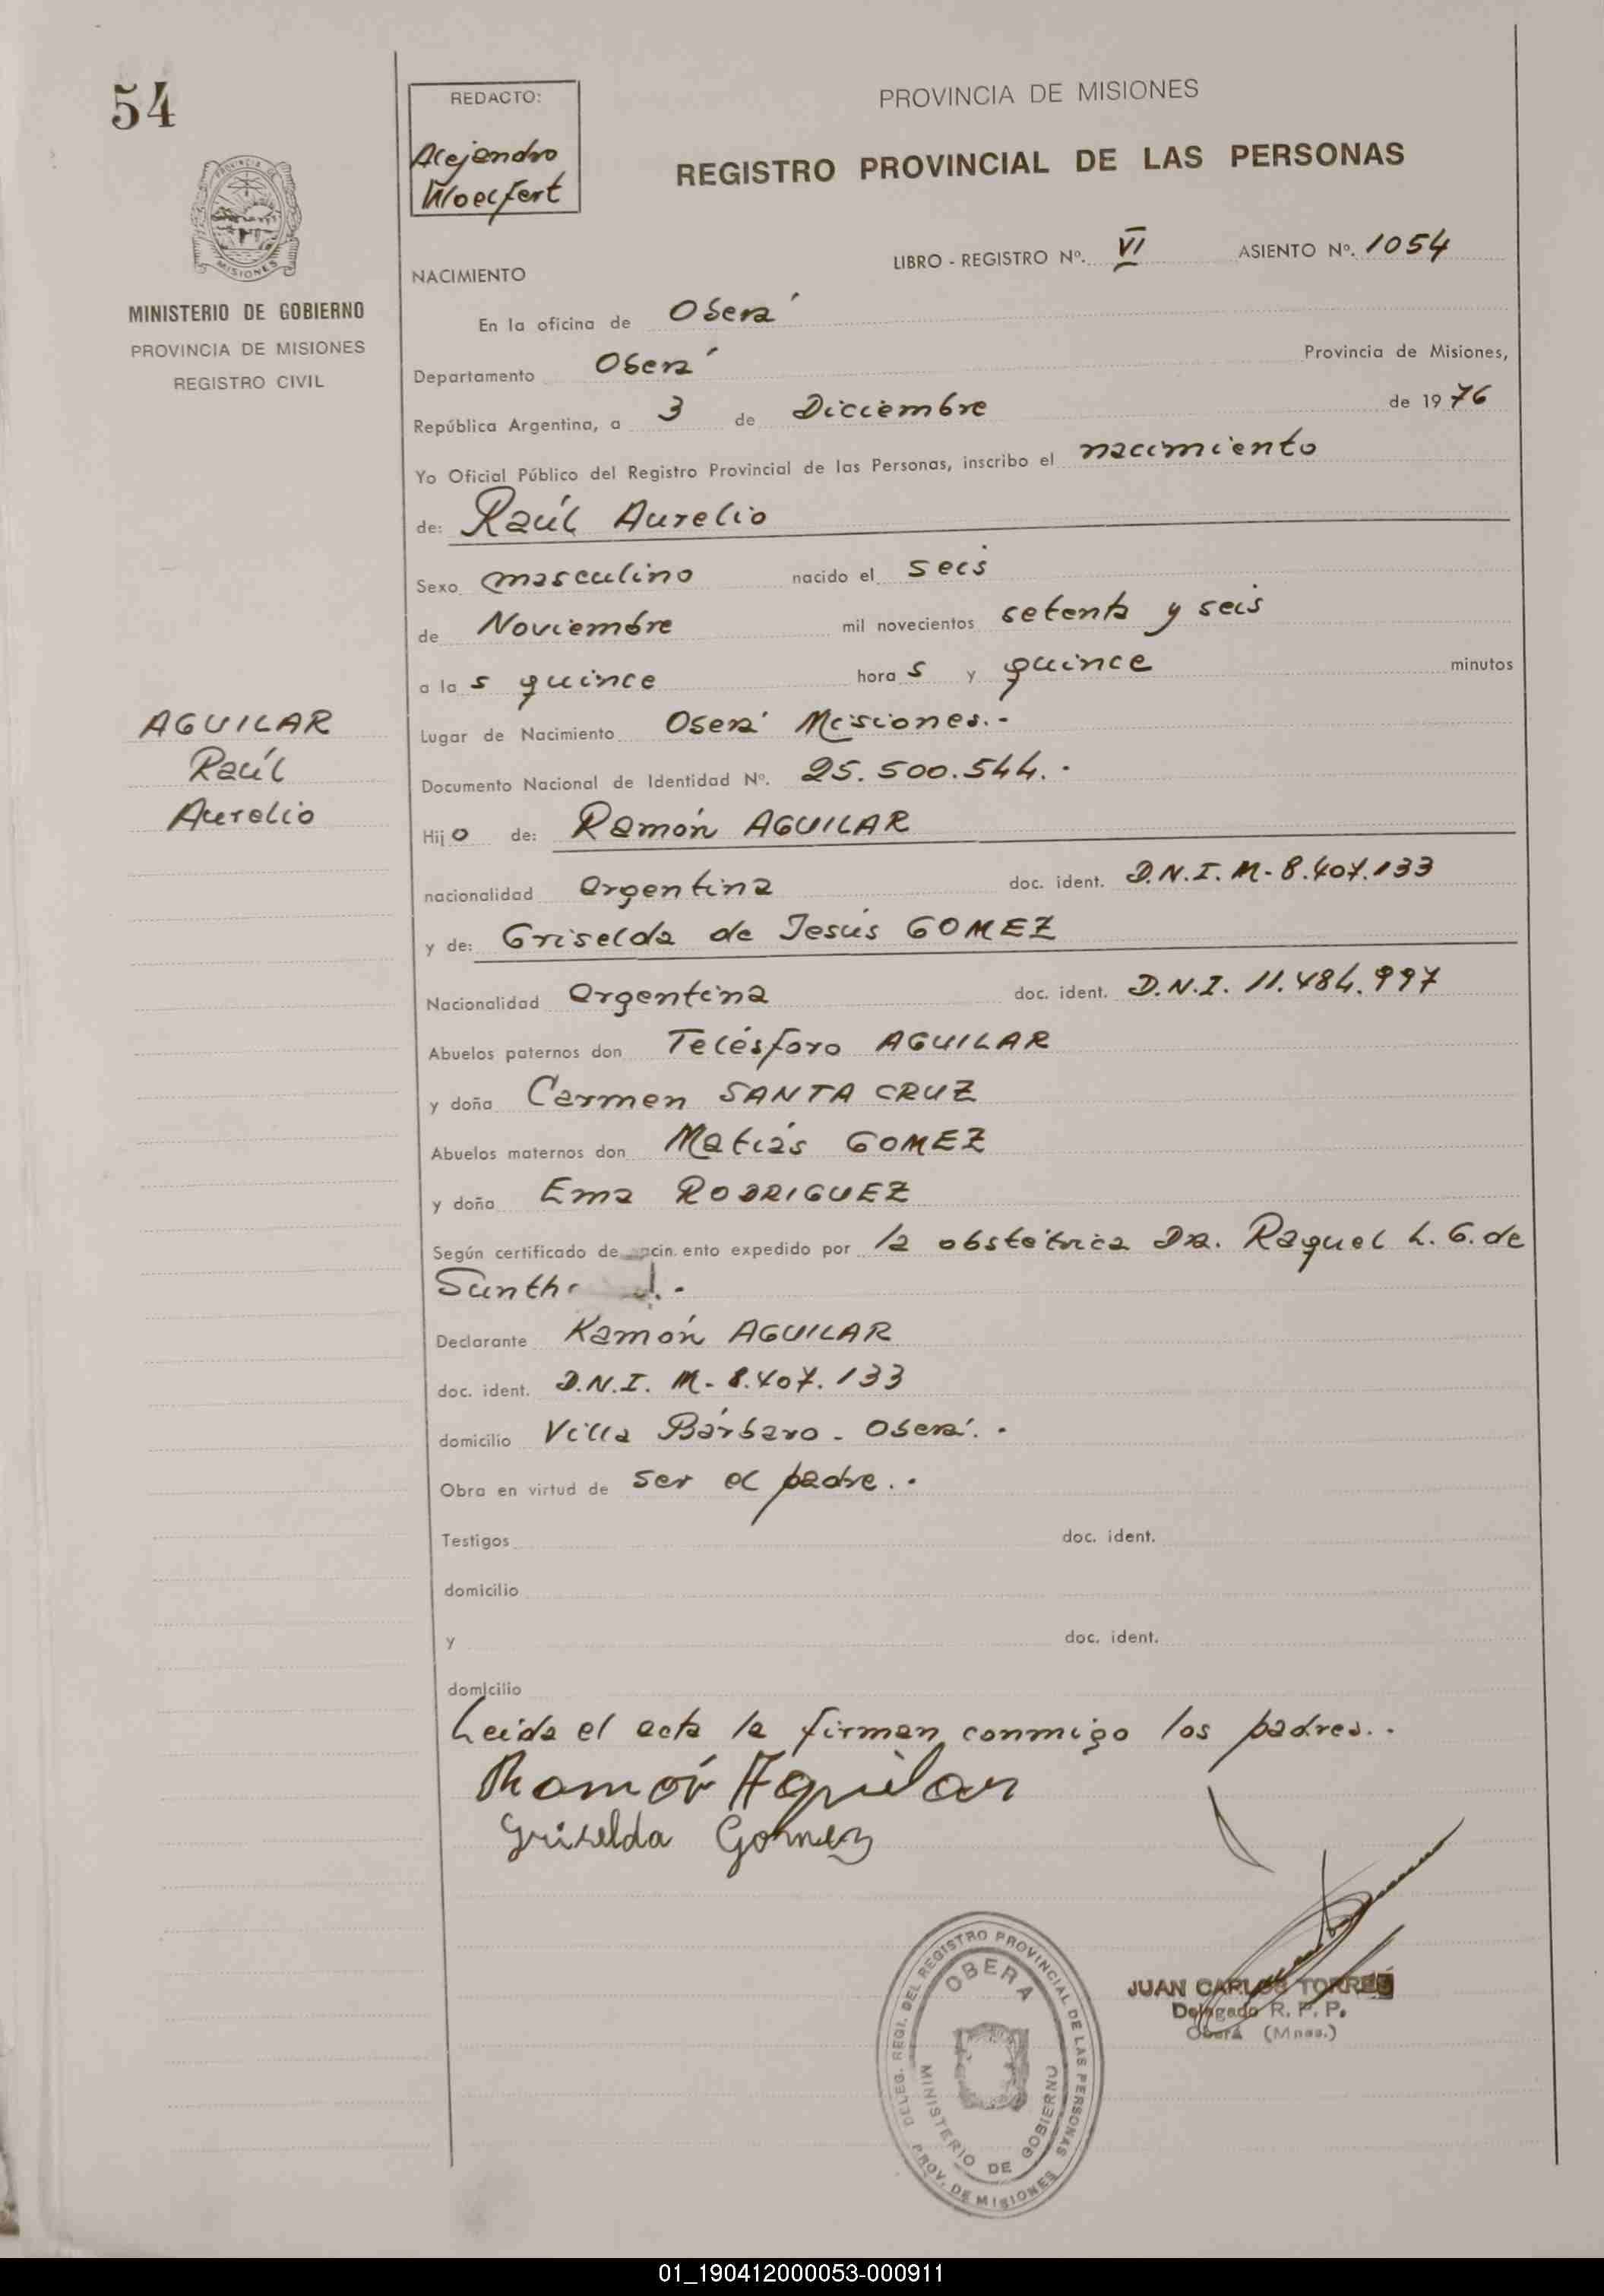 54
REDACTO:
Alejandro
Woelfert
PROVINCIA DE MISIONES
REGISTRO PROVINCIAL DE LAS PERSONAS
PROVINCIA DE
MISIONES
MINISTERIO DE GOBIERNO
PROVINCIA DE MISIONES
REGISTRO CIVIL
LIBRO - REGISTRO Nº. VI ASIENTO Nº. 1054
NACIMIENTO
En la oficina de Oberá
Departamento Oberá Provincia de Misiones,
República Argentina, a 3 de Diciembre de 1976
Yo Oficial Público del Registro Provincial de las Personas, inscribo el nacimiento
de: Raúl Aurelio
Sexo masculino nacido el seis
de Noviembre mil novecientos setenta y seis
a las quince horas y quince minutos
AGUILAR
Raúl
Aurelio
Lugar de Nacimiento Oberá Misiones.-
Documento Nacional de Identidad Nº. 25.500.544.-
Hijo de: Ramón AGUILAR
nacionalidad argentina doc. ident. D.N.I. M-8.407.133
y de: Griselda de Jesús GOMEZ
Nacionalidad argentina doc. ident. D.N.I. 11.484.997
Abuelos paternos don Telésforo AGUILAR
y doña Carmen SANTA CRUZ
Abuelos maternos don Matías GOMEZ
y doña Ema RODRIGUEZ
Según certificado de expedido por la obstétrica Dra. Raquel L. G. de
Declarante Ramón AGUILAR
doc. ident. D.N.I. M-8.407.133
domicilio Villa Bárbaro - Oberá.-
Obra en virtud de ser el padre.-
Testigos doc. ident.
domicilio
y doc. ident.
domicilio
Leida el acta la firman conmigo los padres.-
Ramón Aguilar
Griselda Gomez
DELEG. REGI. DEL REGISTRO PROVINCIAL DE LAS PERSONAS
OBERA
MINISTERIO DE GOBIERNO
PROV. DE MISIONES
JUAN CARLOS TORRES
Delegado R. P. P.
Oberá (Mnes.)
01_190412000053-000911